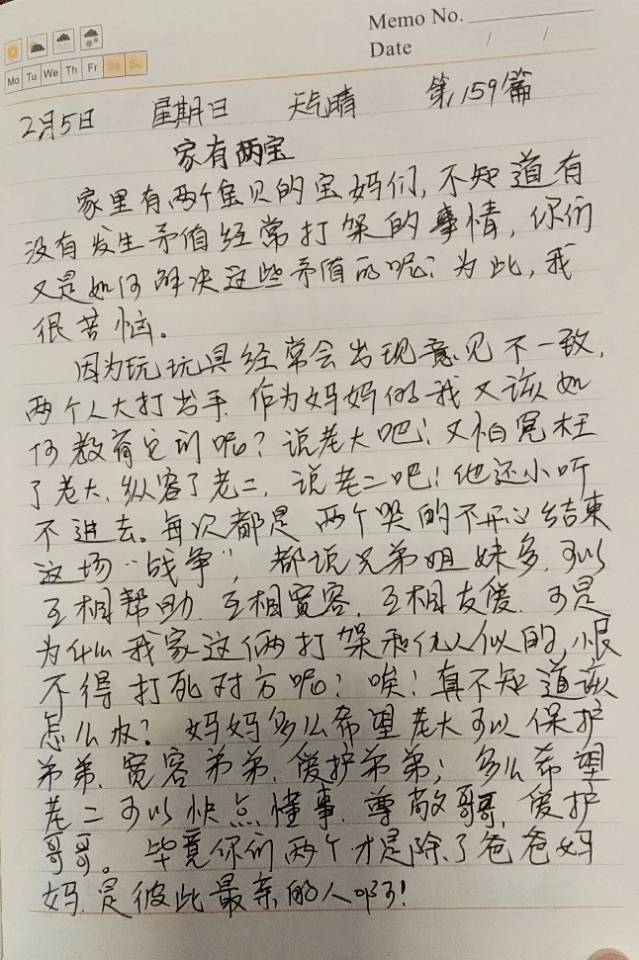 Memo No.
Date / /
Mo Tu We Th Fr Sa Su
2月5日 星期日 天气晴 第159篇
家有两宝
家里有两个宝贝的宝妈们,不知道有
没有发生矛盾经常打架的事情,你们
又是如何解决这些矛盾的呢?为此,我
很苦恼。
因为玩玩具经常会出现意见不一致,
两个人大打出手.作为妈妈的我又该如
何教育它们呢?说老大吧!又怕冤枉
了老大,纵容了老二,说老二吧!他还小听
不进去。每次都是两个哭的不开心结束
这场“战争”,都说兄弟姐妹多,可以
互相帮助.互相宽容.互相友爱.可是
为什么我家这俩打架和仇人似的,恨
不得打死对方呢?唉!真不知道该
怎么办?妈妈多么希望老大可以保护
弟弟.宽容弟弟.爱护弟弟;多么希望
老二可以快点懂事.尊敬哥哥,爱护
哥哥。毕竟你们两个才是除了爸爸妈
妈.是彼此最亲的人啊!